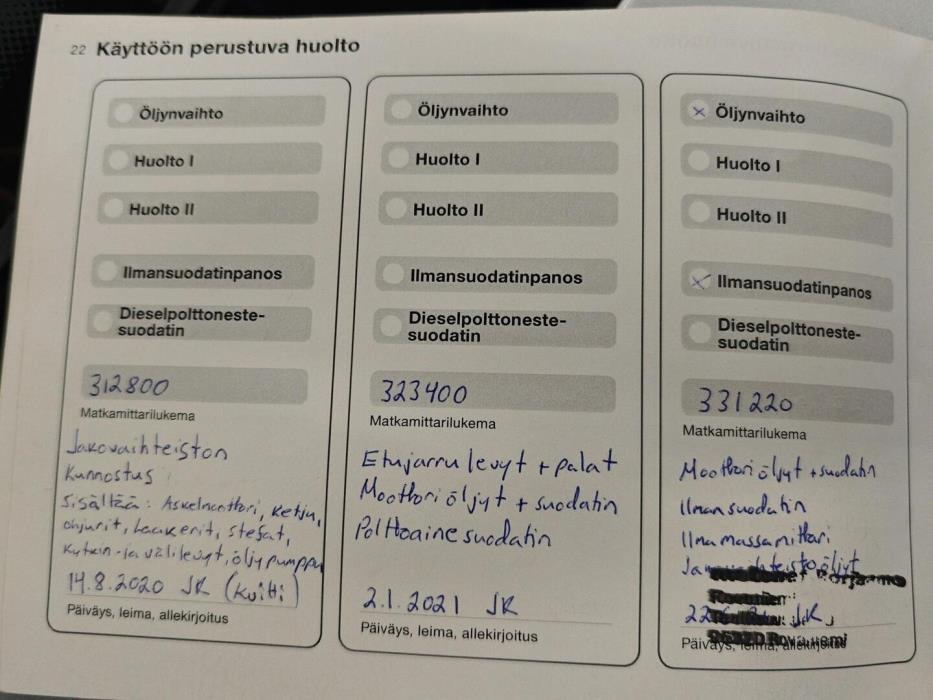 22 Käyttöön perustuva huolto
Öljynvaihto
Huolto I
Huolto II
Ilmansuodatinpanos
Dieselpolttoneste-
suodatin
312800
Matkamittarilukema
Jakovaihteiston
kunnostus
sisältää: Askelmoottori, ketju,
ohjurit, laakerit, stefat,
kytkin- ja välilevyt, öljypumppu
14.8.2020 JK (kuitti)
Päiväys, leima, allekirjoitus
Öljynvaihto
Huolto I
Huolto II
Ilmansuodatinpanos
Dieselpolttoneste-
suodatin
323400
Matkamittarilukema
Etujarrulevyt + palat
Moottoriöljyt + suodatin
Polttoainesuodatin
2.1.2021 JK
Päiväys, leima, allekirjoitus
Öljynvaihto
Huolto I
Huolto II
Ilmansuodatinpanos
Dieselpolttoneste-
suodatin
331220
Matkamittarilukema
Moottoriöljyt + suodatin
Ilmansuodatin
Ilmamassamittari
JK
Päiväys, leima, allekirjoitus